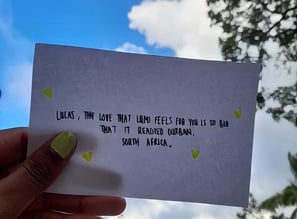 LUCAS, THE LOVE THAT LUMI FEELS FOR YOU IS SO BIG
THAT IT REACHED DURBAN,
SOUTH AFRICA.